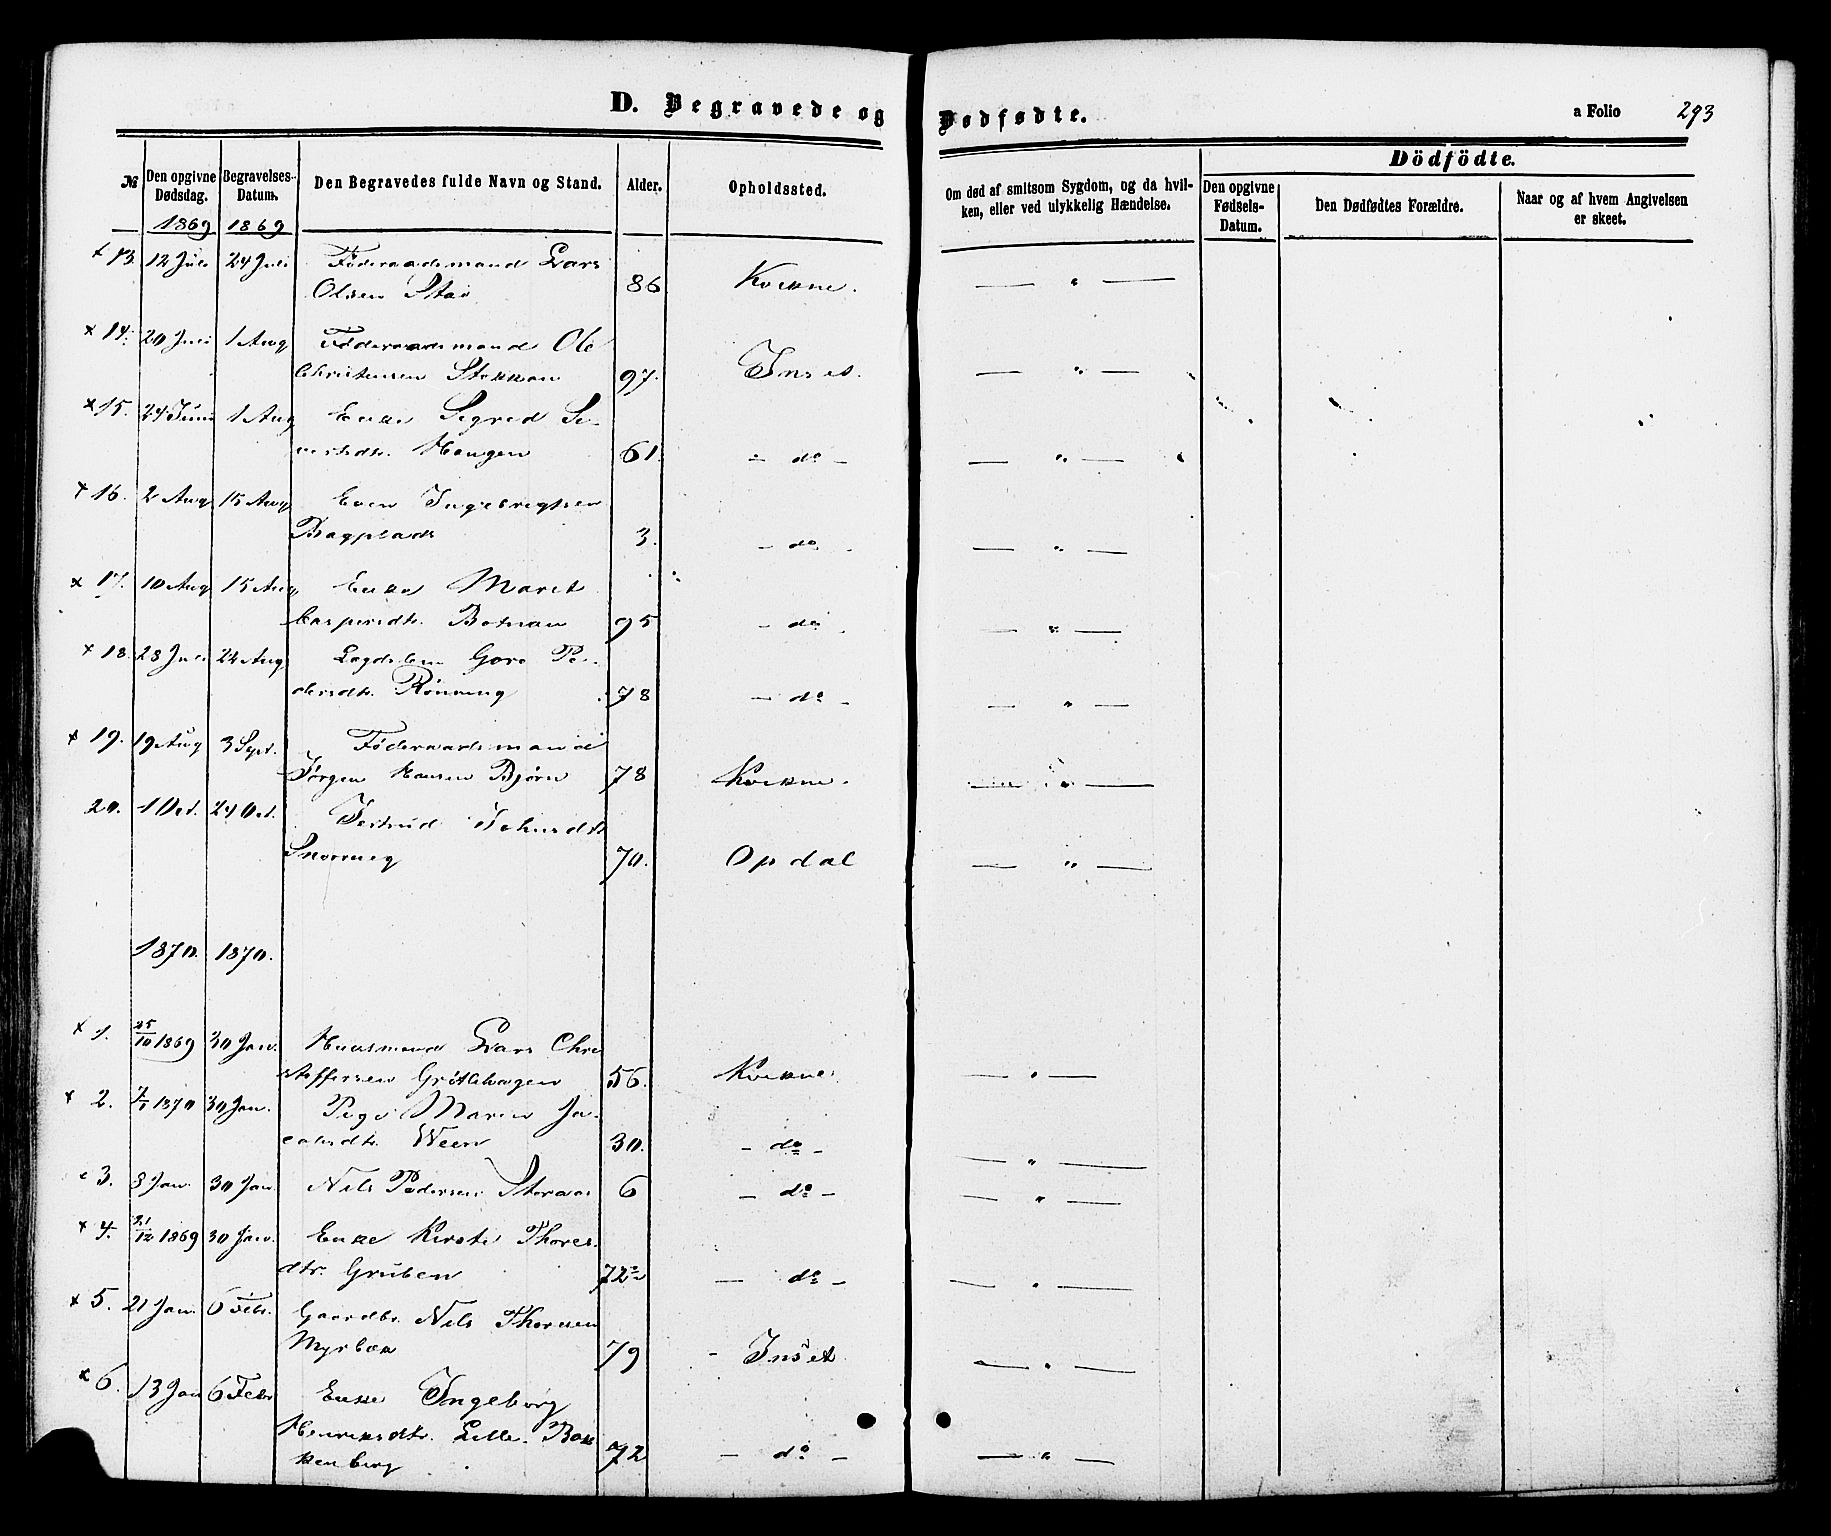 D. Begravede og Dødfødte.
a Folio 293
№
Den opgivne Dødsdag.
Begravelses-Datum.
Den Begravedes fulde Navn og Stand.
Alder.
Opholdssted.
Om død af smitsom Sygdom, og da hvilken, eller ved ulykkelig Hændelse.
Dödfödte.
Den opgivne Fødsels-Datum.
Den Dødfødtes Forældre.
Naar og af hvem Angivelsen er skeet.
1869 1869
+ 13. 12 Juli 24 Juli Føderaadsmand Lars
Olsen Stai 86 Kvikne. — " —
x 14. 20 Juli 1 Aug Føderaadsmand Ole
Christensen Stokkan 97. Inset. — " —
x 15. 24 Juni 1 Aug Enke Sigrid Si-
vertsdtr. Haugen 61. – do – — " —
+ 16. 2 Aug 15 Aug Even Ingebrigtsen
Bagplads 3. – do – — " —
x 17. 10 Aug 15 Aug Enke Marit
Caspersdtr. Botnan 95 – do – — " —
+ 18. 28 Juli 22 Aug Lægdslem Goro Pe-
dersdtr. Rönning 78 – do – — " —
+ 19. 19 Aug 3 Sept. Føderaadsmand
Jørgen Hansen Bjørn 78 Kvikne. — " —
20. 1 Oct. 24 Oct. Jertrud Johnsdtr
70. Opdal — " —
1870. 1870.
+ 1. 25/10 1869 30 Jan. Huusmand Lars Chri
stoffersen Grøtlihaugen 56. Kvikne. — " —
+ 2. 30 Jan. Pige Maren Ja-
cobsdtr. Ween 30. – do – — " —
3. 8 Jan. 30 Jan. Nils Pedersen Storaas 6 – do – — " —
+ 4. 31/12 1869 30 Jan. Enke Kirsti Thores-
dtr. Gruben – do – — " —
x 5. 21 Jan. 6 Febr. Gaardbr. Nils Thoresen
Myrbæk 79 – Inset — " —
x 6. 13 Jan 6 Febr Enke Ingeborg
Henriksdtr. Lille Bak
kenberg 72 – do – — " —